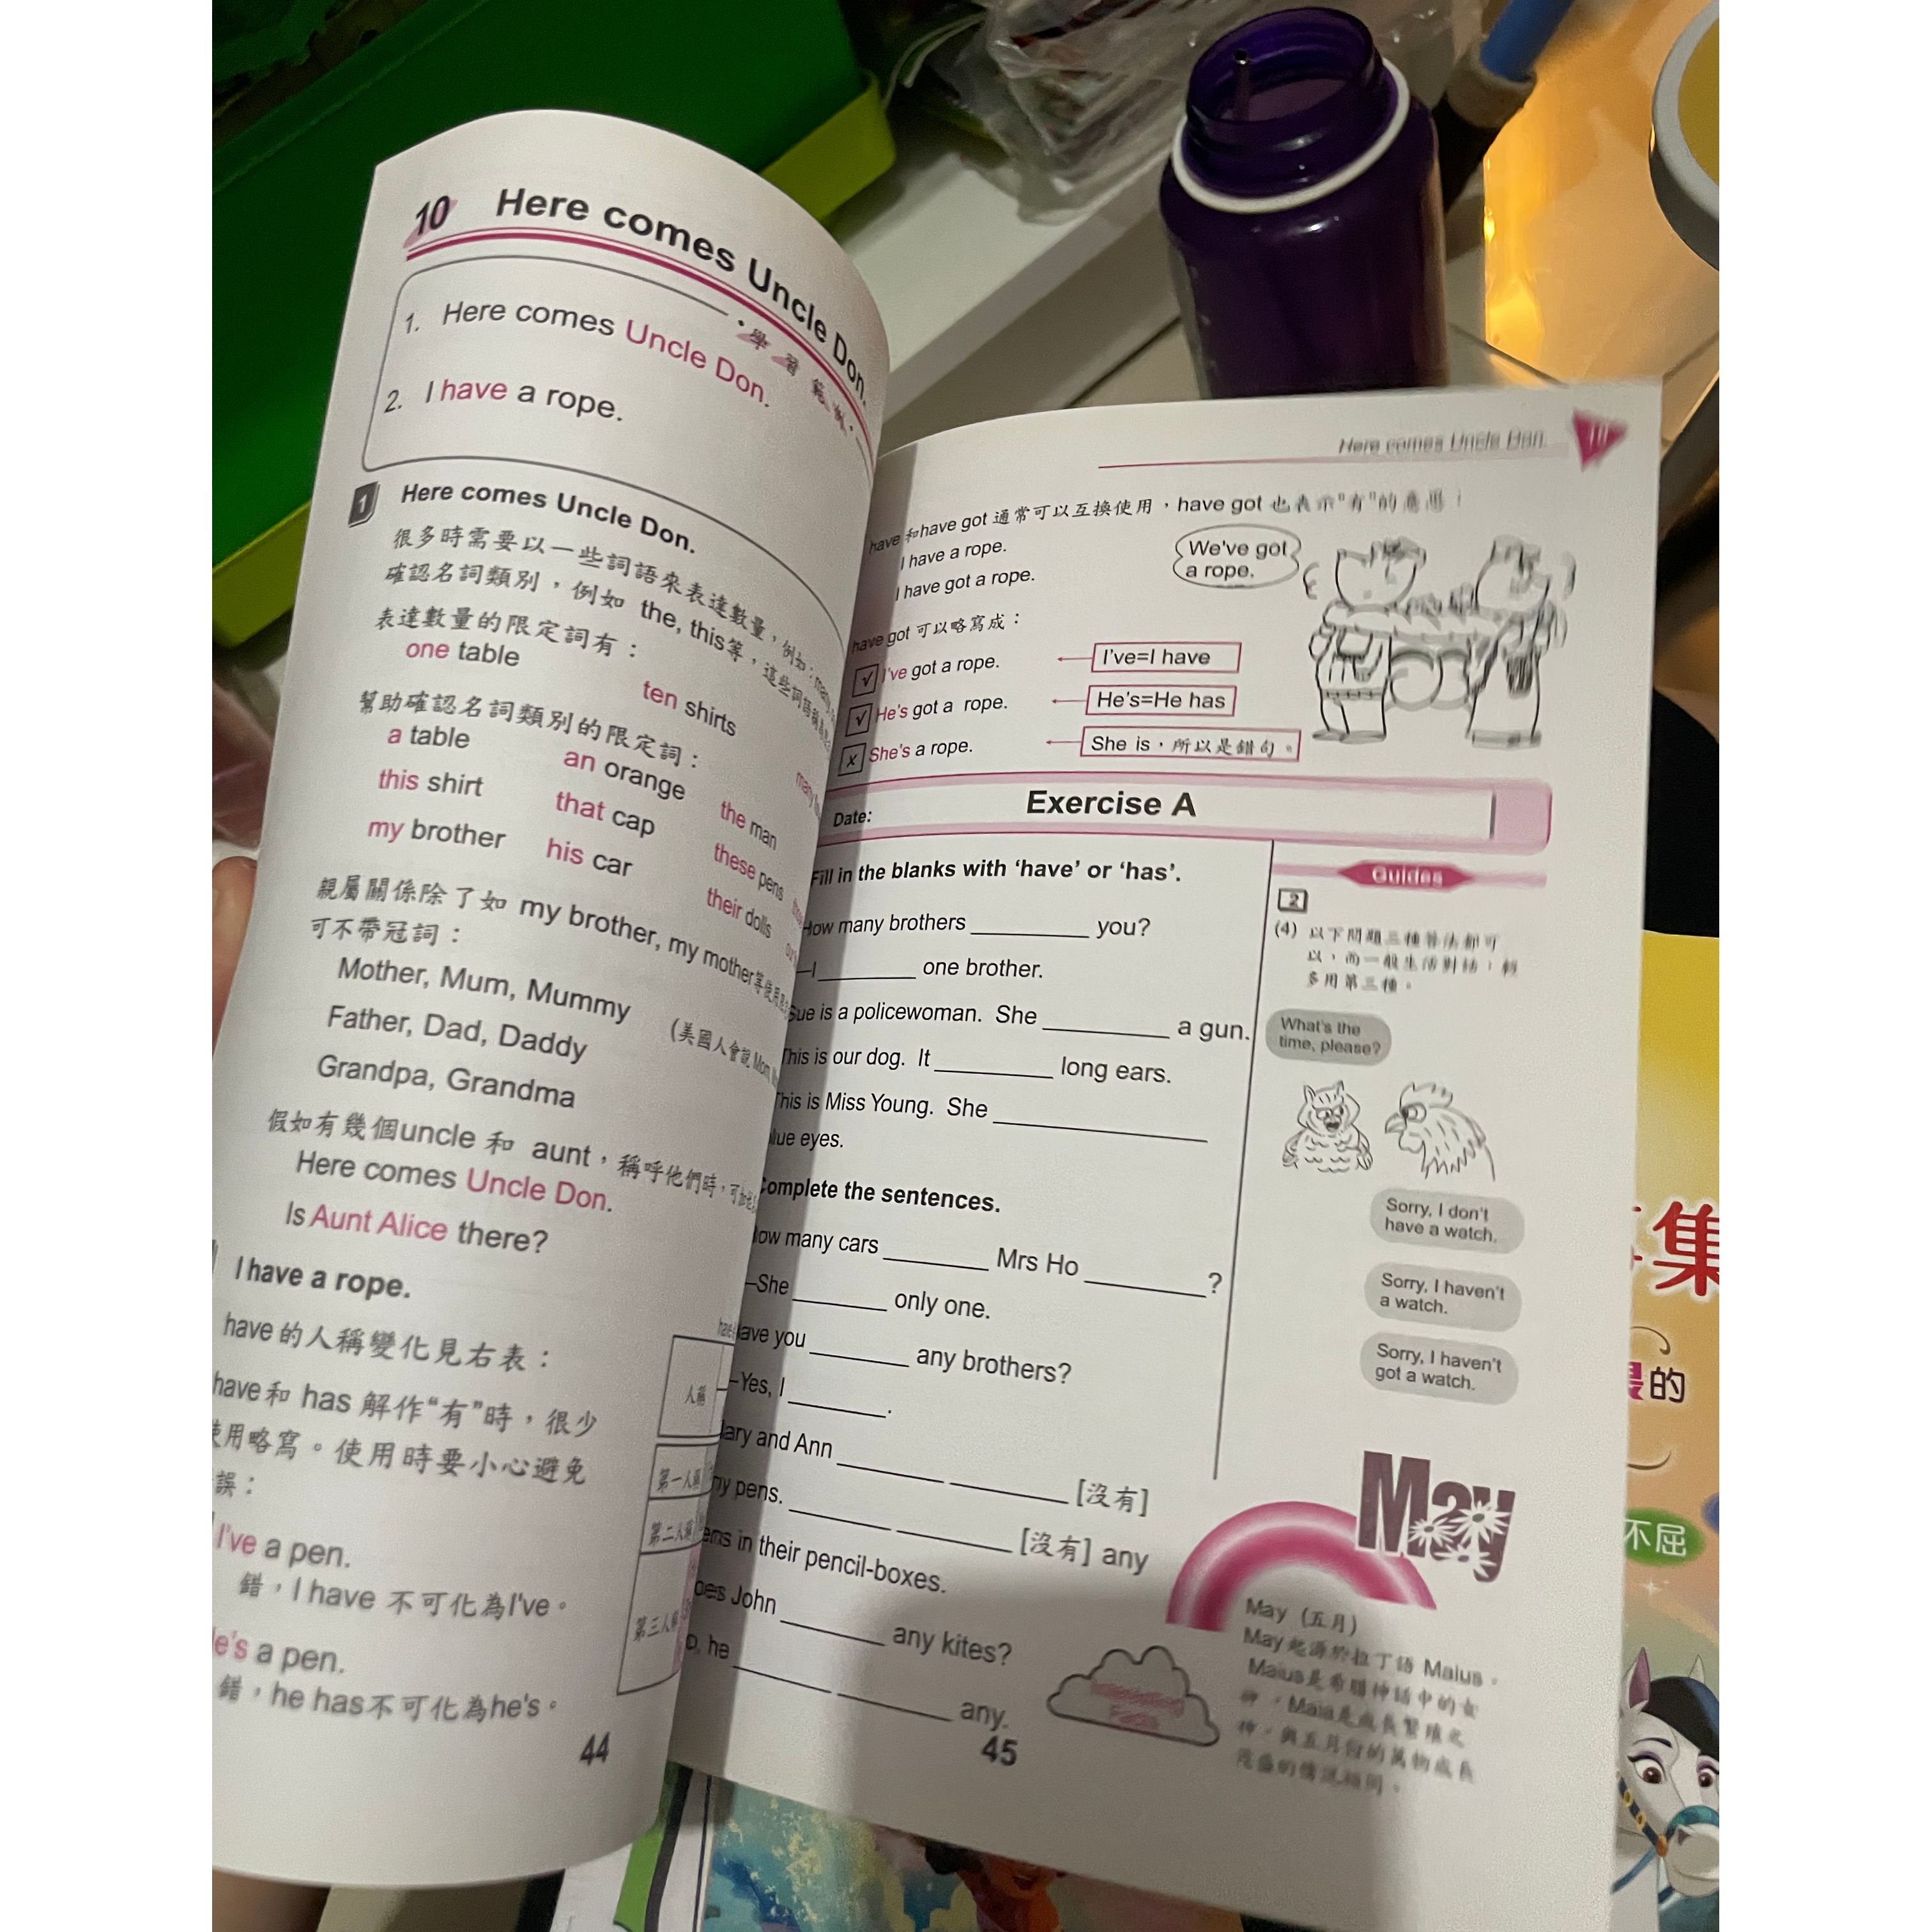 10 Here comes Uncle Don.
學習範例
1. Here comes Uncle Don.
2. I have a rope.
1 Here comes Uncle Don.
很多時需要以一些詞語來表達數量，例如：many
確認名詞類別，例如 the, this等，這些詞語稱
表達數量的限定詞有：
one table ten shirts many
幫助確認名詞類別的限定詞：
a table an orange the man
this shirt that cap these pens
my brother his car their dolls
親屬關係除了如 my brother, my mother等使用
可不帶冠詞：
Mother, Mum, Mummy (美國人會說 Mom
Father, Dad, Daddy
Grandpa, Grandma
假如有幾個uncle 和 aunt，稱呼他們時，可
Here comes Uncle Don.
Is Aunt Alice there?
I have a rope.
have 的人稱變化見右表：
have和 has 解作“有”時，很少
使用略寫。使用時要小心避免
誤：
I've a pen.
錯，I have 不可化為I've。
e's a pen.
錯，he has不可化為he's。
人稱
第一人稱
第二人稱
第三人稱
44
Here comes Uncle Don. 10
have 和have got 通常可以互換使用，have got 也表示“有”的意思：
I have a rope.
I have got a rope.
We've got
a rope.
have got 可以略寫成：
√ I've got a rope. I've=I have
√ He's got a rope. He's=He has
x She's a rope. She is，所以是錯句。
Date: Exercise A
Fill in the blanks with ‘have’ or ‘has’.
How many brothers ________ you?
—I ________ one brother.
Sue is a policewoman. She ________ a gun.
This is our dog. It ________ long ears.
This is Miss Young. She ________
lue eyes.
Complete the sentences.
ow many cars ________ Mrs Ho ________ ?
—She ________ only one.
ave you ________ any brothers?
—Yes, I ________.
ary and Ann ________ ________ [沒有]
ny pens. ________ ________ [沒有] any
ens in their pencil-boxes.
oes John ________ any kites?
o, he ________ ________ any.
Guides
2
(4) 以下問題三種答法都可
以，而一般生活對話，較
多用第三種。
What's the
time, please?
Sorry, I don't
have a watch.
Sorry, I haven't
a watch.
Sorry, I haven't
got a watch.
May
May (五月)
May起源於拉丁語 Maius。
Maius是希臘神話中的女
神，Maia是成長繁殖之
神，與五月份的萬物成長
45
集
的
不屈